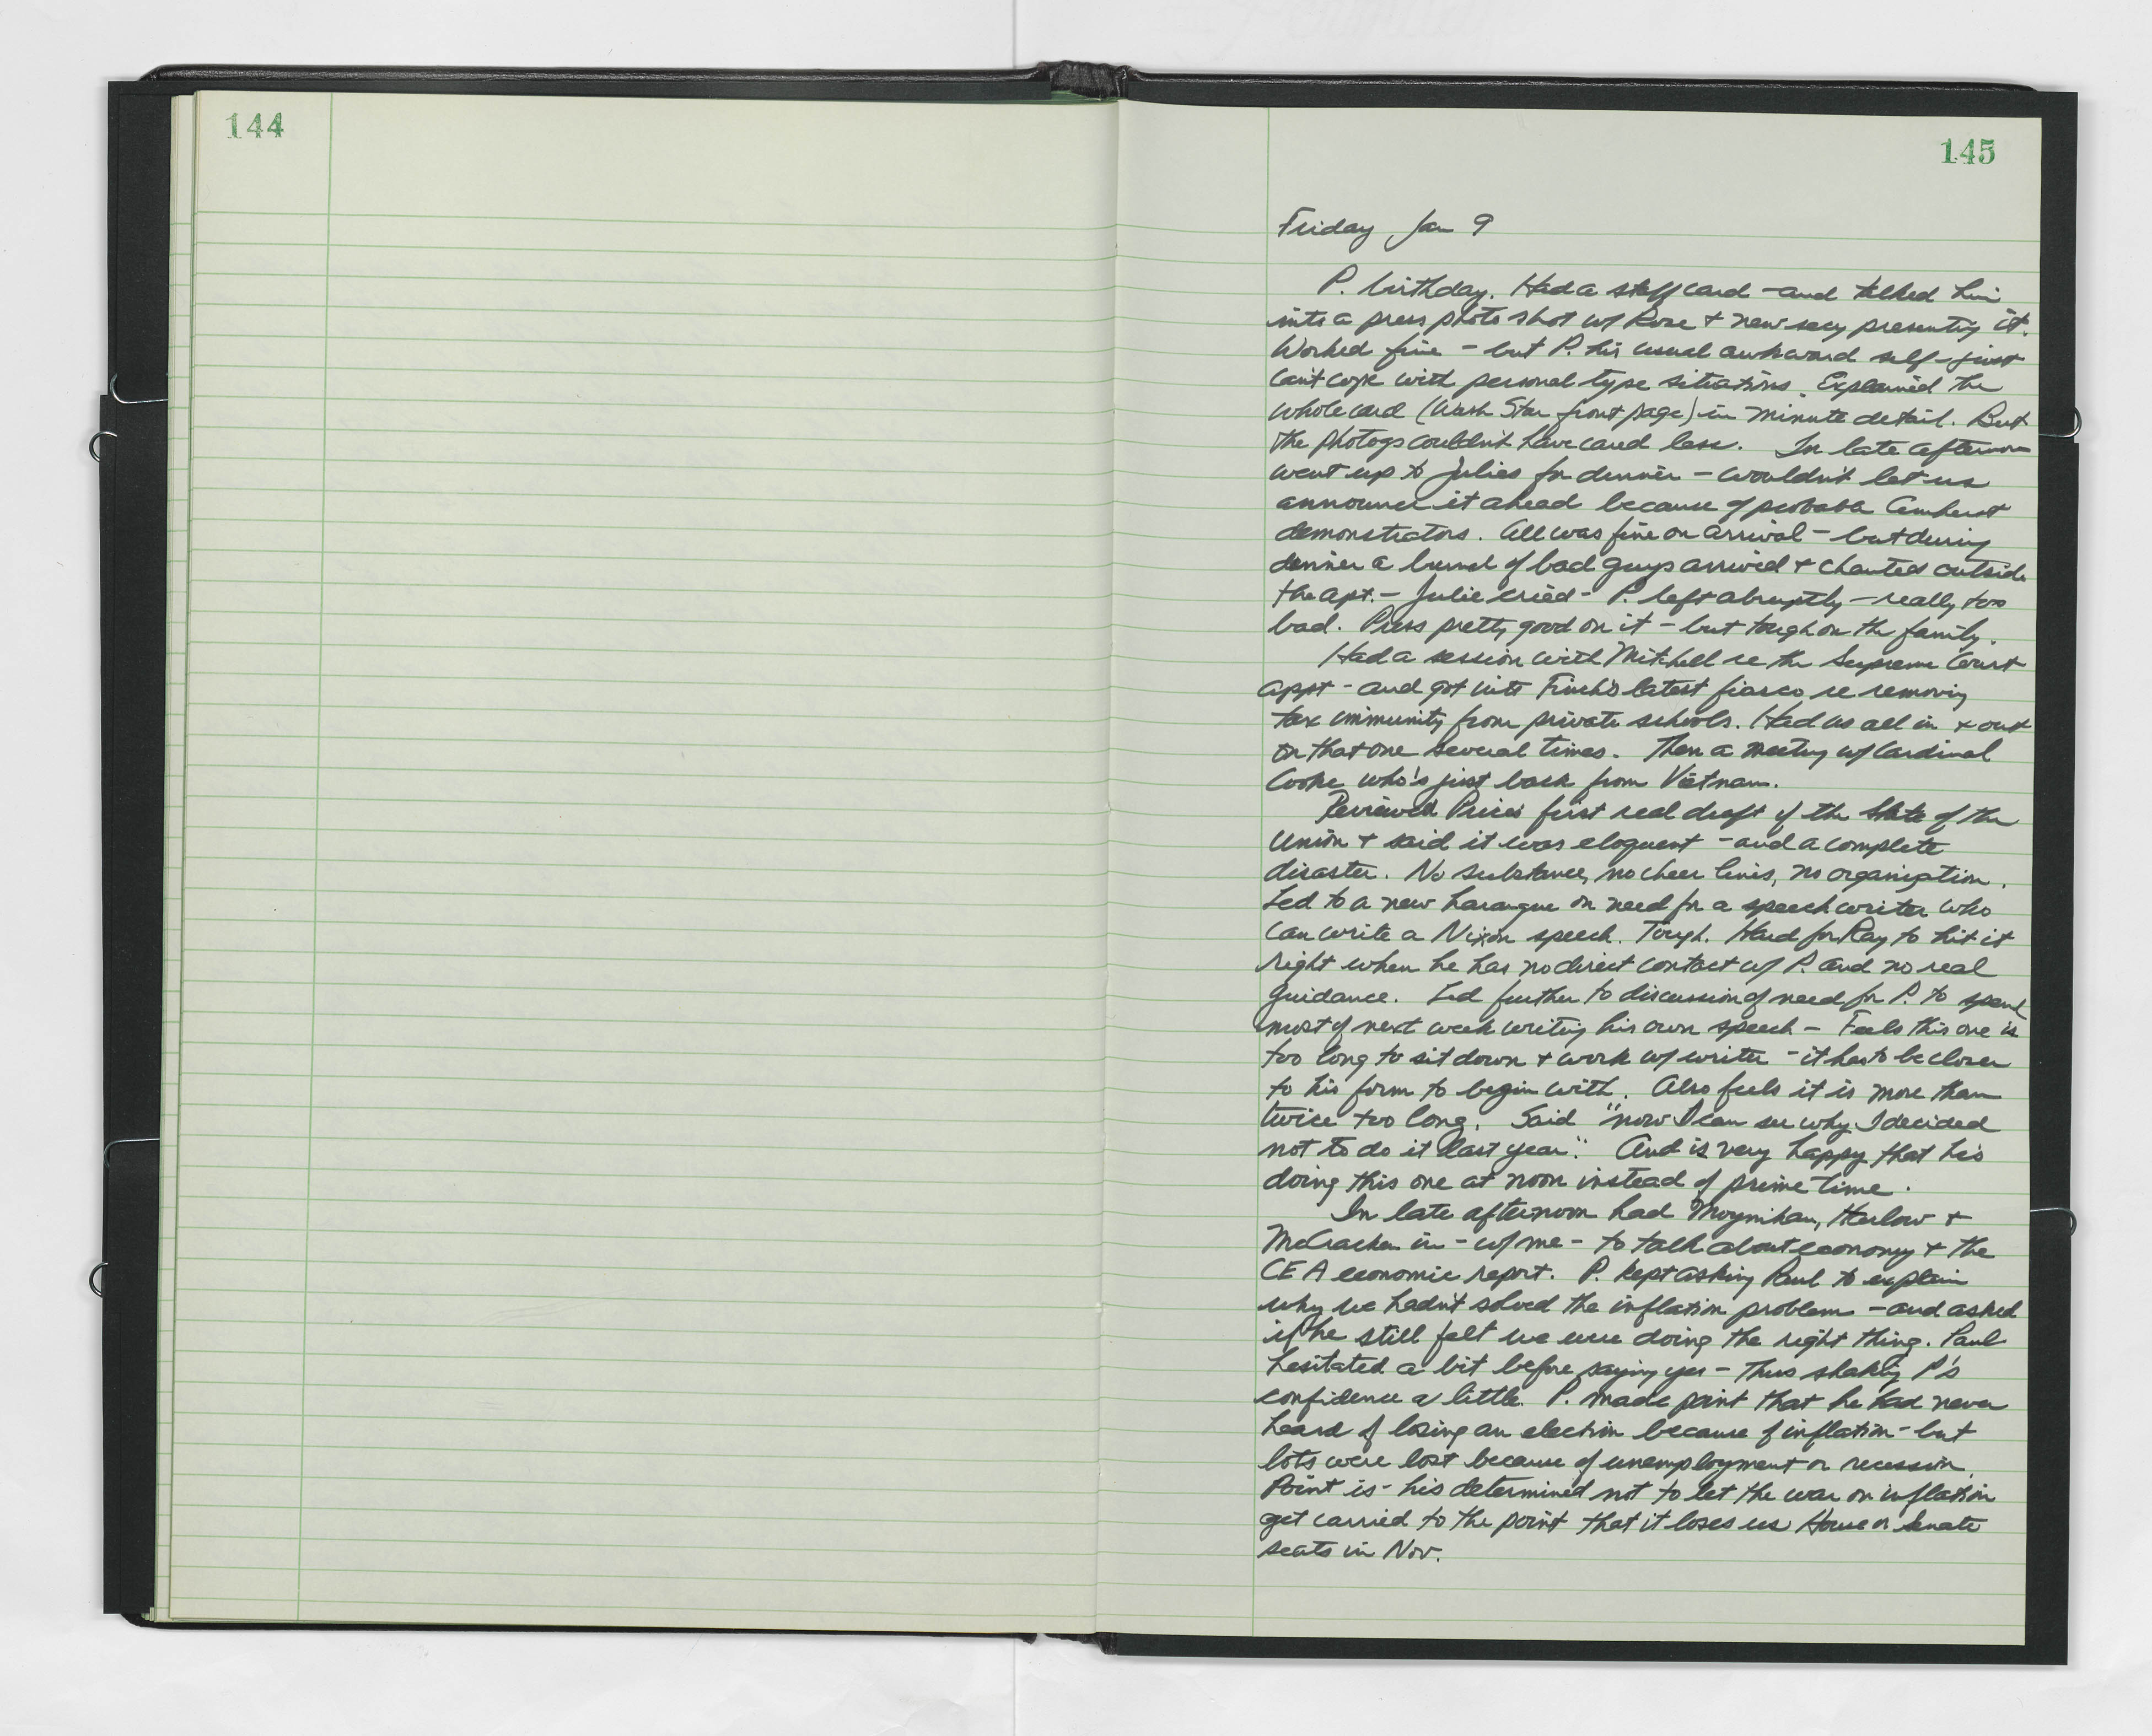 144
145
Friday Jan 9
P. birthday. Had a staff card - and talked him
into a press photo shot w/ Rose + new secy presenting it.
Worked fine - but P. his usual awkward self - just
can't cope with personal type situations. Explained the
whole card (Wash Star front page) in minute detail. But
the photogs couldn't have cared less. In late afternoon
went up to Julies for dinner - wouldn't let us
announce it ahead because of probable Amherst
demonstrators. All was fine on arrival - but during
dinner a bunch of bad guys arrived + chanted outside
the apt. - Julie cried - P. left abruptly - really too
bad. Press pretty good on it - but tough on the family.
Had a session with Mitchell re the Supreme Court
appt - and got into Finch's latest fiasco re removing
tax immunity from private schools. Had us all in + out
on that one several times. Then a meeting w/ Cardinal
Cooke who's just back from Vietnam.
Reviewed Price's first real draft of the State of the
Union + said it was eloquent - and a complete
disaster. No substance, no cheer lines, no organization.
Led to a new harangue on need for a speech writer who
can write a Nixon speech. Tough. Hard for Ray to hit it
right when he has no direct contact w/ P. and no real
guidance. Led further to discussion of need for P. to spend
most of next week writing his own speech - Feels this one is
too long to sit down + work w/ writer - it has to be closer
to his form to begin with. Also feels it is more than
twice too long. Said "now I can see why I decided
not to do it last year." And is very happy that he's
doing this one at noon instead of prime time.
In late afternoon had Moynihan, Harlow +
McCracken in - w/ me - to talk about economy + the
CEA economic report. P. kept asking Paul to explain
why we hadn't solved the inflation problem - and asked
if he still felt we were doing the right thing. Paul
hesitated a bit before saying yes - thus shaking P's
confidence a little. P. made point that he had never
heard of losing an election because of inflation - but
lots were lost because of unemployment or recession.
Point is - he's determined not to let the war on inflation
get carried to the point that it loses us House or Senate
seats in Nov.